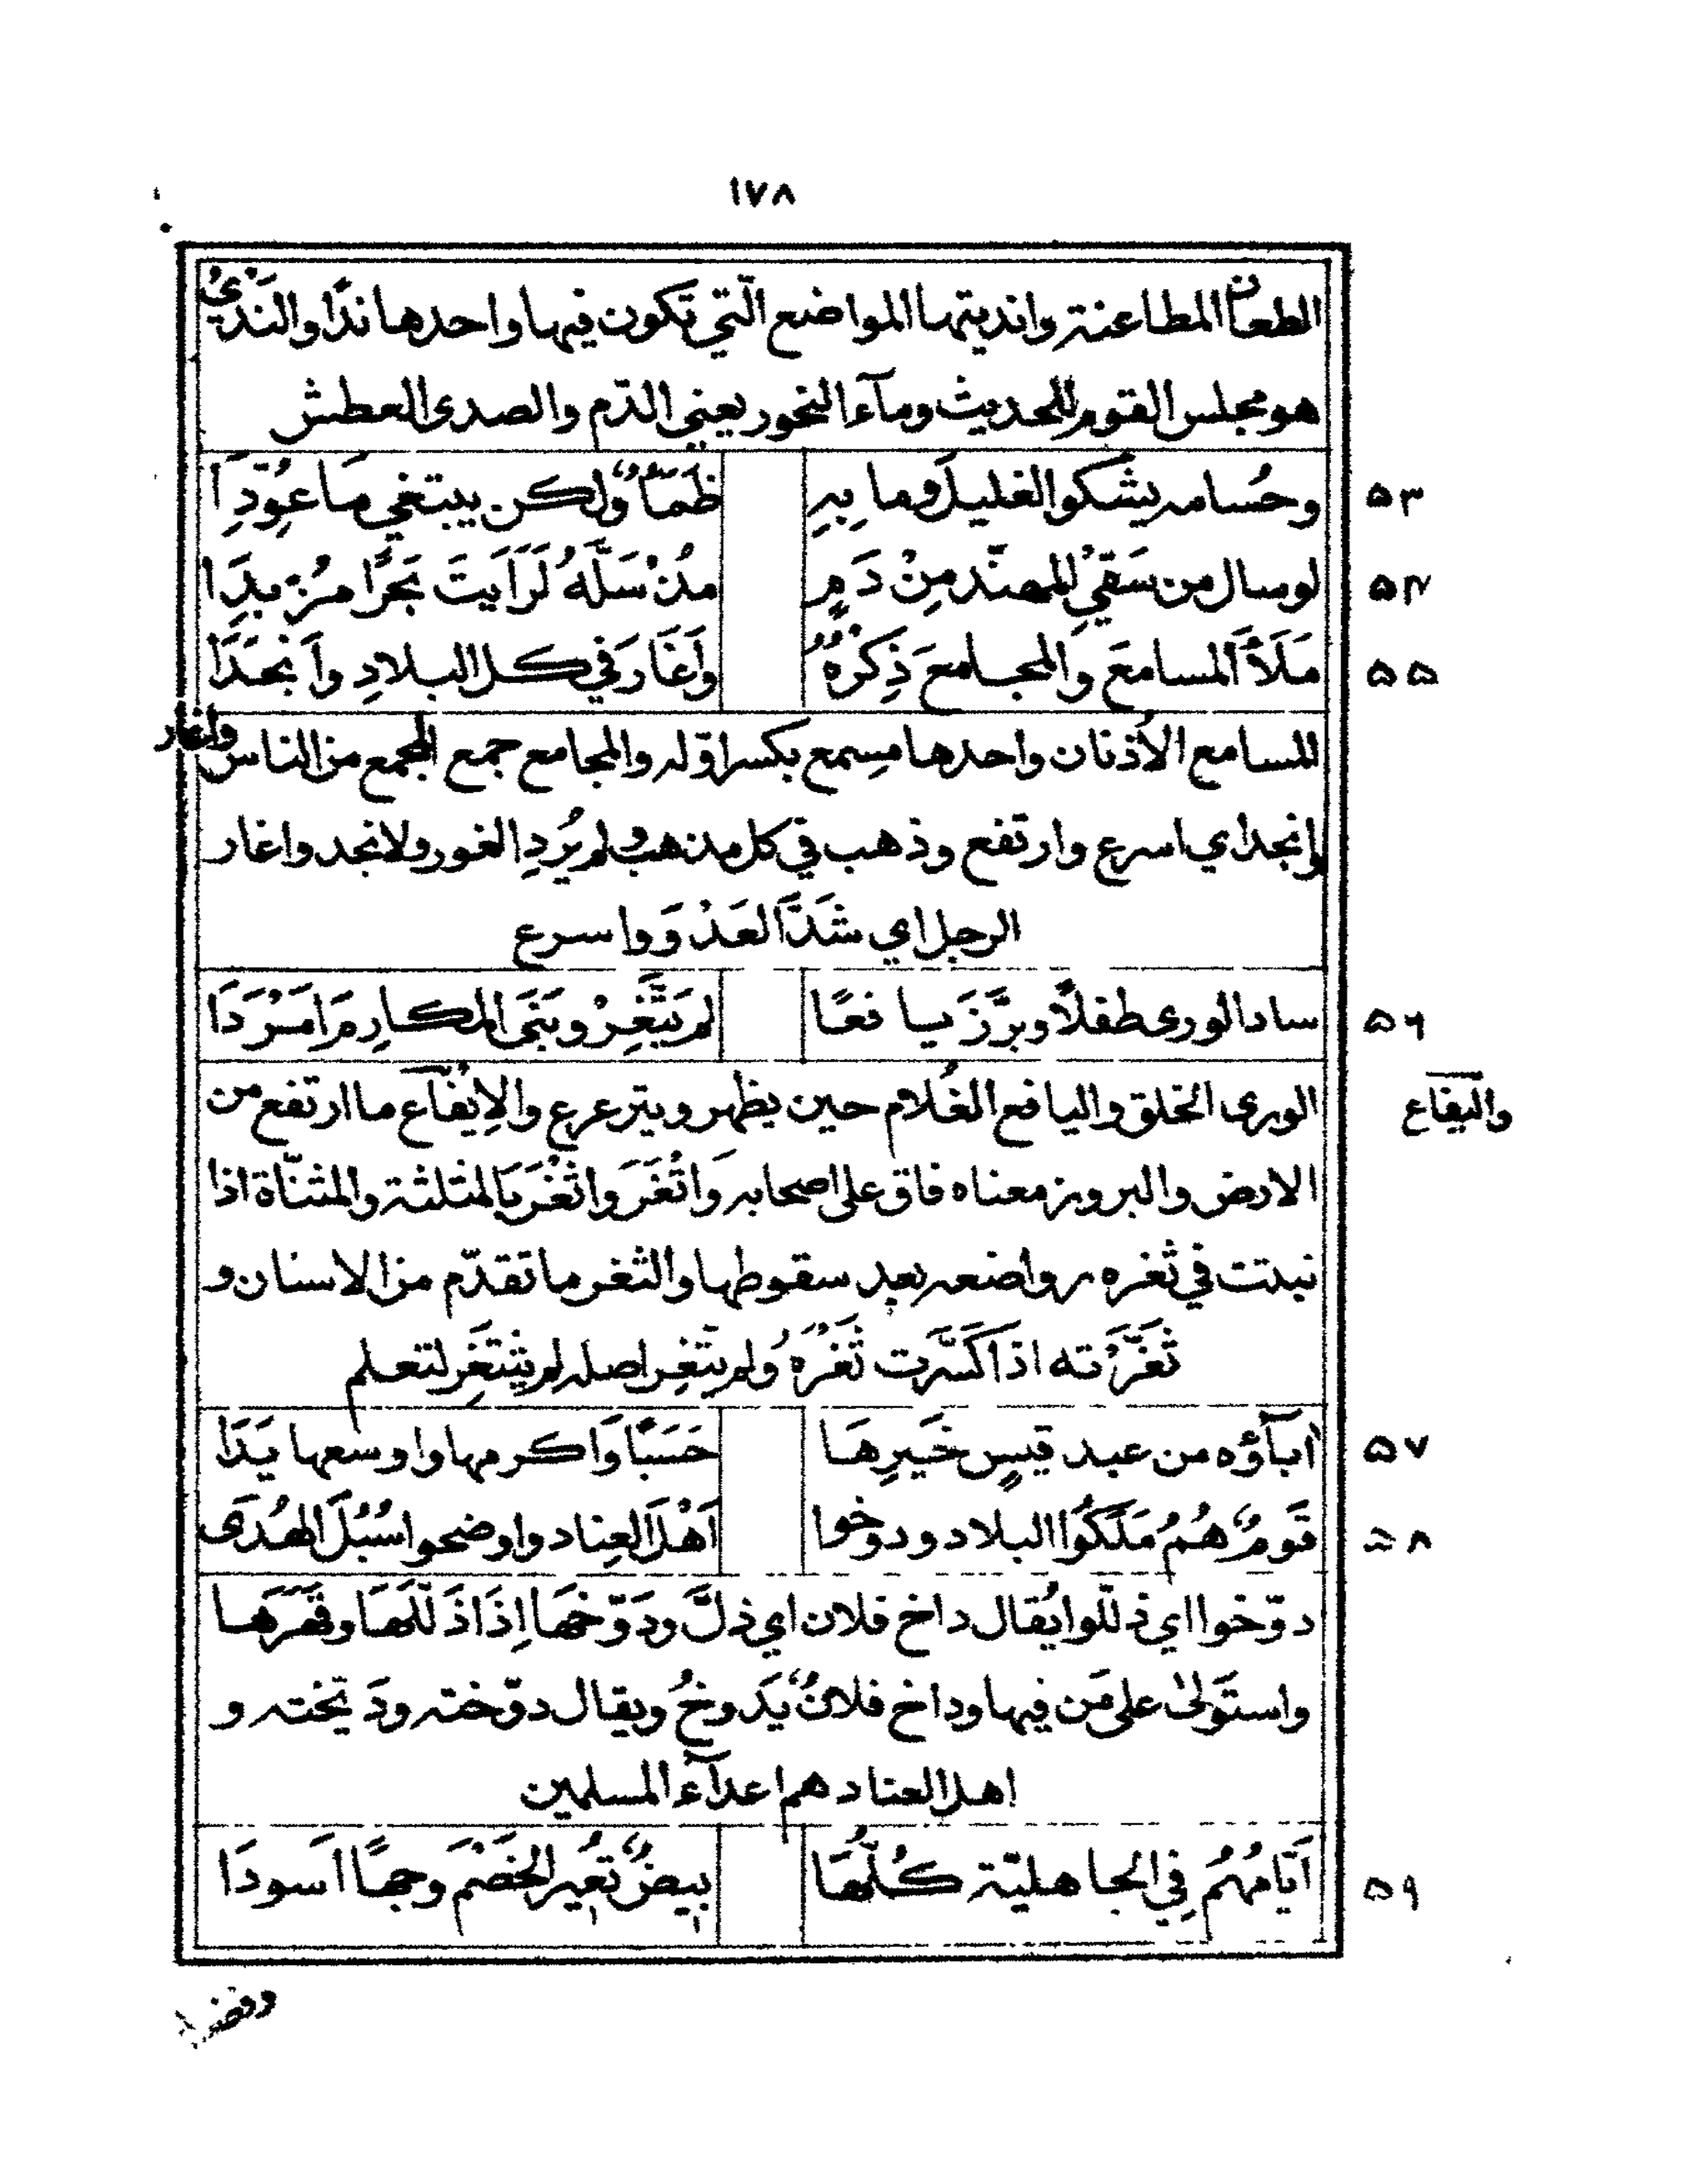 ١٧٨
الطعان المطاعنة وانديتها المواضع الّتي تكون فيها واحدها ندًا والنَدْيُ
هو مجلس القوم للحديث ومآء النحور يعني الدّم والصدى العطش
٥٣ وحُسامه يشكوا الغليل وما بِهِ ظَمَأٌ ولكن يبتغي مَا عُوِّدَا
٥٤ لوسال من سَقْيِ المهنّد مِنْ دَمٍ مذْ سَلَّهُ لَرَاَيتَ بَحْرًا مُزْبِدَا
٥٥ مَلَأَ المسامعَ والمجامعَ ذِكْرُهُ وَأَغَارَ في كل البلادِ وأَنْجَدَا
المسامع الأذنان واحدها مِسمع بكسر اوّله والمجامع جمع المجمع من الناس واغار
وانجد اي اسرع وارتفع وذهب في كل مذهب ولم يُرِدِ الغور ولا نجد واغار
الرجل اي شَدَّ العَدْوَ واسرع
٥٦ ساد الورى طفلاً وبرَّزَ يافعًا لم يَتَّغِرْ وبَنَى المكارِمَ اَمْرَدَا
الورى الخلق واليافع الغُلام حين يظهر ويترعرع والاِيْفَآع ما ارتفع من
واليفاع
الارض والبروز معناه فاق على اصحابه وَاثَّغَرَ واتَّغَرَ بالمثلثة والمثنّاة اذا
نبتت في ثغره رواضعه بعد سقوطها والثغر ما تقدّم من الاسنان و
ثَغَرْته اذا كَسَّرت ثَغْرَهُ ولم يتّغِر اصله لم يثتَغِر لتعلم
٥٧ اٰبآؤه من عبد قيسٍ خَيرِهَا حَسَبًا وَاكرمها واوسعها يَدَا
٥٨ قَومٌ هُمُ مَلَكُوا البلاد ودوخوا اَهْلَ العِناد واوضحوا سُبُلَ الهُدَى
دوّخوا اي ذلّلوا يُقال داخ فلان اي ذلَّ ودَوّخهَا اِذَا ذَلّلهَا وقَهَرَهَا
واستَولىٰ على مَن فيها وداخ فلانٌ يَدوخُ ويقال دوّخته ودَيّخته و
اهل العناد هم اعدآء المسلمين
٥٩ اَيّامُهُم فِي الجاهليّة كُلّهَا بيضٌ تُعير الخَصْمَ وجهًا اَسودَا